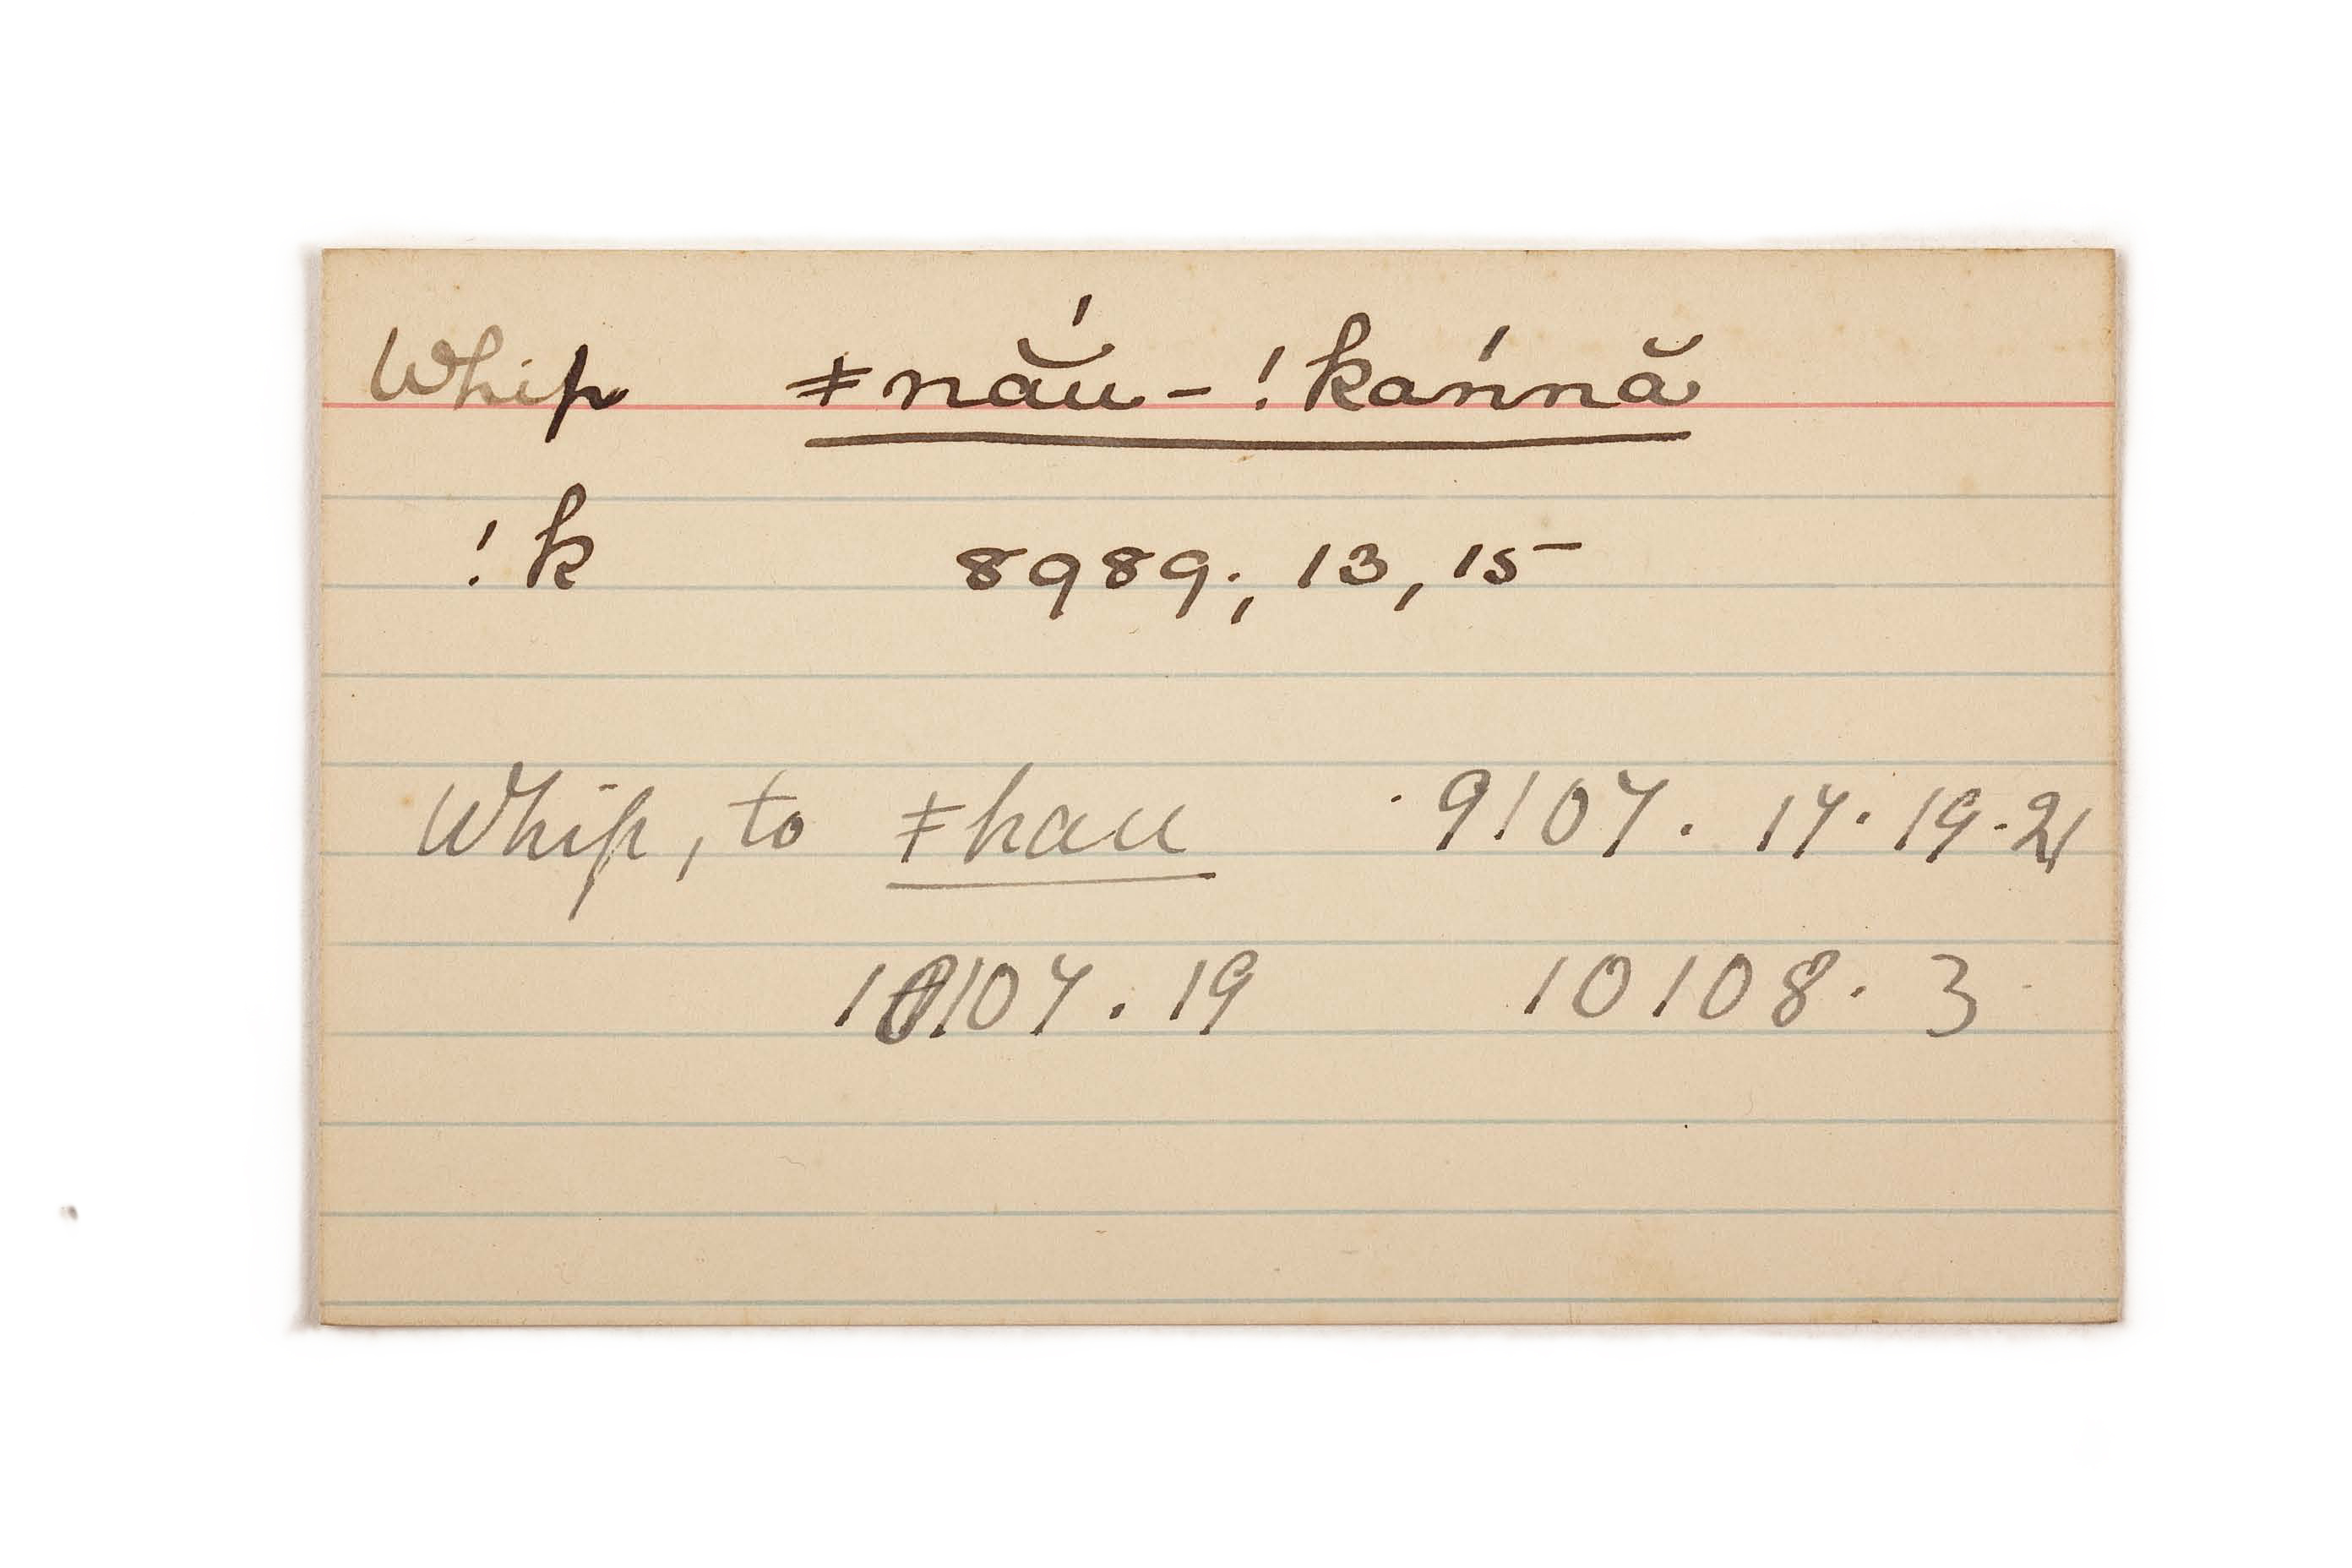 Whip ǂnắu-!kánnă
!k 8989; 13, 15
Whip, to ǂhau . 9107. 17. 19. 21
10107. 19 10108. 3